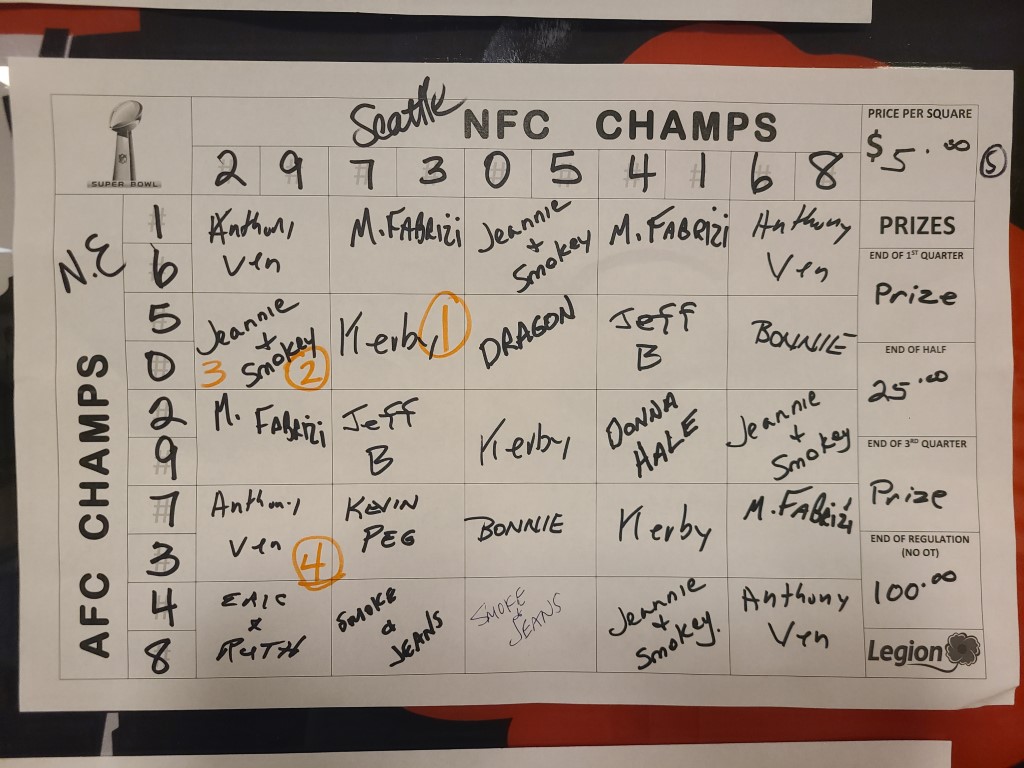 Seattle NFC CHAMPS
PRICE PER SQUARE
$5.00
5
SUPER BOWL
2 9 7 3 0 5 4 1 6 8
N.E
AFC CHAMPS
1
6
Anthony
Ven
M. FABRIZI
Jeannie
+
Smokey
M. FABRIZI
Anthony
Ven
PRIZES
END OF 1ST QUARTER
Prize
5
0
Jeannie
+
Smokey
3 2
Kerby 1
DRAGON
Jeff
B
BONNIE
END OF HALF
25.00
2
9
M. FABRIZI
Jeff
B
Kerby
DONNA
HALE
Jeannie
+
Smokey
END OF 3RD QUARTER
Prize
7
3
Anthony
Ven
4
KEVIN
PEG
BONNIE
Kerby
M. FABRIZI
END OF REGULATION
(NO OT)
100.00
4
8
ERIC
&
RUTH
SMOKE
&
JEANS
SMOKE
&
JEANS
Jeannie
+
Smokey.
Anthony
Ven
Legion